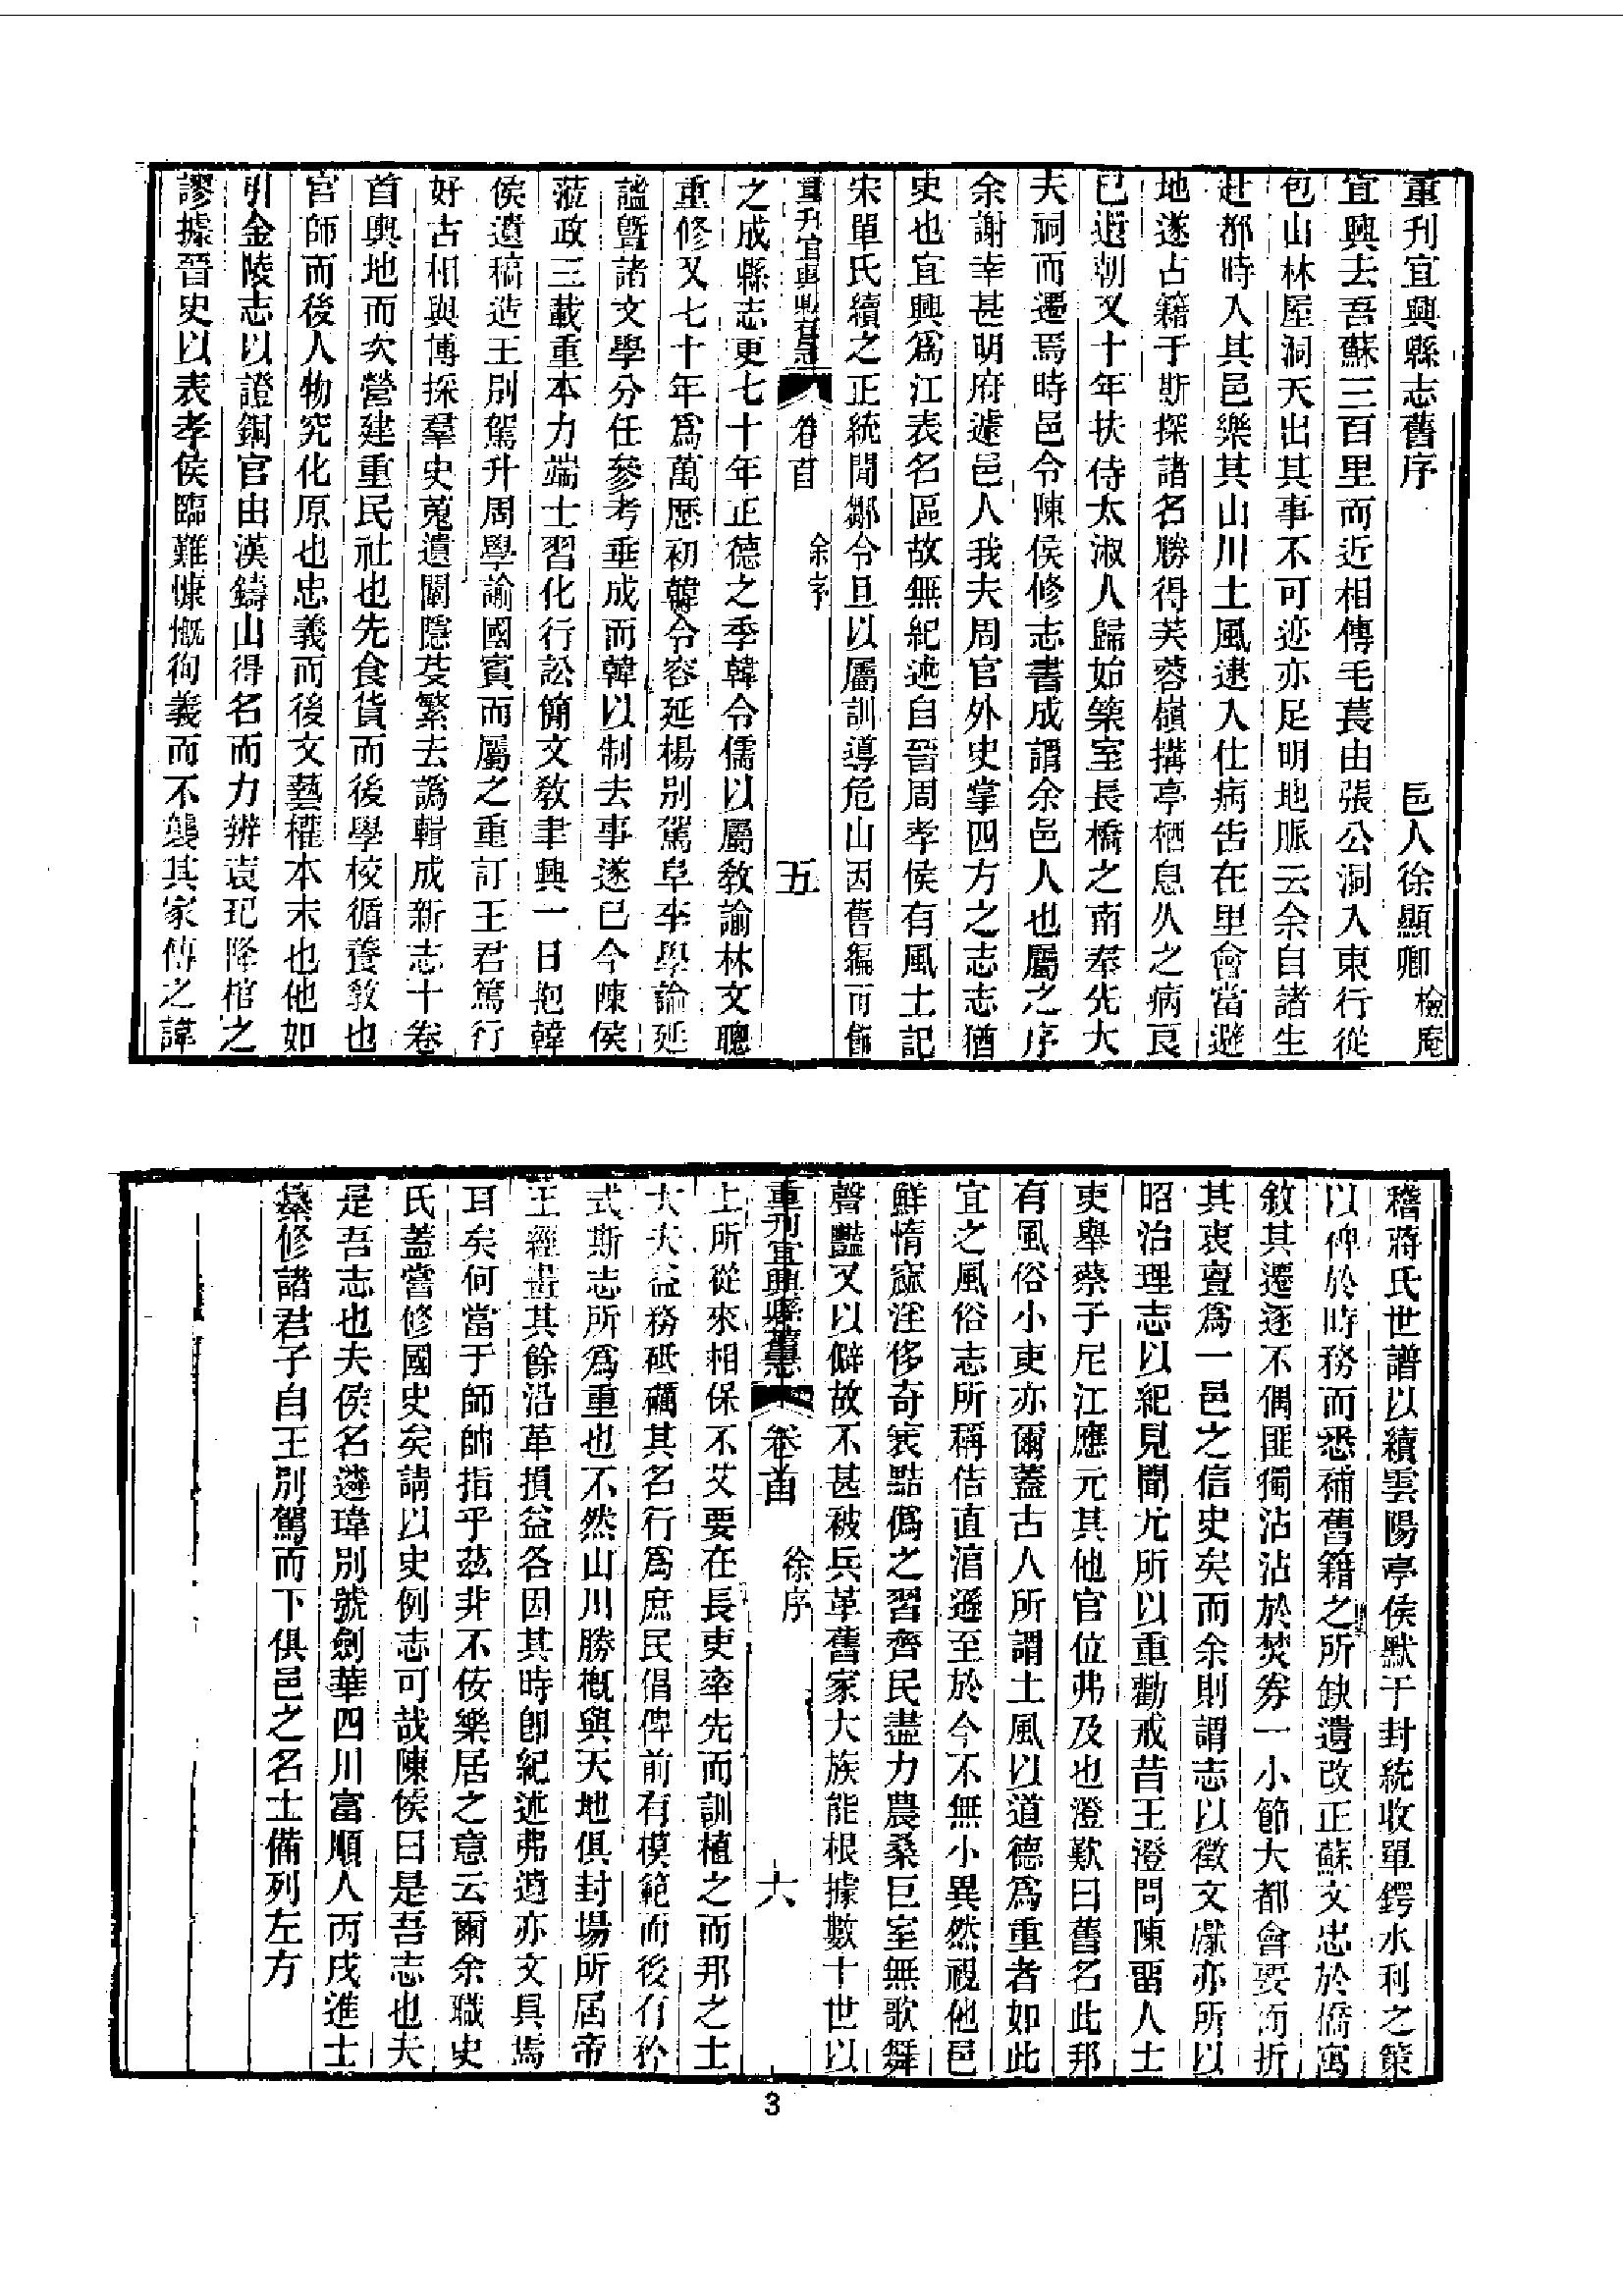 重刋宜興縣志舊序
邑人徐顯卿檢庵
宜興去吾蘇三百里而近相傳毛萇由張公洞入東行從
包山林屋洞天出其事不可迹亦足明地脈云余自諸生
赴都時入其邑樂其山川土風逮入仕病告在里會當避
地遂占籍于斯探諸名勝得芙蓉嶺搆亭栖息久之病良
已還朝又十年扶侍太淑人歸始築室長橋之南奉先大
夫祠而遷焉時邑令陳侯修志書成謂余邑人也屬之序
余謝幸甚明府遽邑人我夫周官外史掌四方之志志猶
史也宜興爲江表名區故無紀述自晉周孝侯有風土記
宋單氏續之正統閒鄒令旦以屬訓導危山因舊編而飾
重刋宜興縣舊志
卷首
徐序
五
之成縣志更七十年正德之季韓令儒以屬敎諭林文聰
重修又七十年爲萬歷初韓令容延楊別駕阜李學諭延
謐曁諸文學分任參考垂成而韓以制去事遂已今陳侯
蒞政三載重本力端士習化行訟簡文敎聿興一日抱韓
侯遺稿造王別駕升周學諭國賓而屬之重訂王君篤行
好古相與博採羣史蒐遺闡隱芟繁去譌輯成新志十卷
首輿地而次營建重民社也先食貨而後學校循養敎也
官師而後人物究化原也忠義而後文藝權本末也他如
引金陵志以證銅官由漢鑄山得名而力辨袁玘降棺之
謬據晉史以表孝侯臨難慷慨徇義而不襲其家傳之諱
稽蔣氏世譜以續雲陽亭侯默于封統收單鍔水利之策
以俾於時務而悉補舊籍之所缺遺改正蘇文忠於僑寓
敘其遷逐不偶匪獨沾沾於焚券一小節大都會要而折
其衷亶爲一邑之信史矣而余則謂志以徵文獻亦所以
昭治理志以紀見聞尤所以重勸戒昔王澄問陳畱人士
吏舉蔡子尼江應元其他官位弗及也澄歎曰舊名此邦
有風俗小吏亦爾蓋古人所謂土風以道德爲重者如此
宜之風俗志所稱佶直湻遜至於今不無小異然視他邑
鮮惰窳淫侈奇衺點僞之習齊民盡力農桑巨室無歌舞
聲豔又以僻故不甚被兵革舊家大族能根據數十世以
重刋宜興縣舊志
卷首
徐序
六
上所從來相保不艾要在長吏率先而訓植之而邦之士
大夫益務砥礪其名行爲庶民倡俾前有模範而後有矜
式斯志所爲重也不然山川勝槪與天地俱封場所屆帝
王經畫其餘沿革損益各因其時卽紀述弗遺亦文具焉
耳矣何當于師帥指乎茲非不佞樂居之意云爾余職史
氏蓋嘗修國史矣請以史例志可哉陳侯曰是吾志也夫
是吾志也夫侯名遴瑋別號劍華四川富順人丙戌進士
纂修諸君子自王別駕而下俱邑之名士備列左方
3